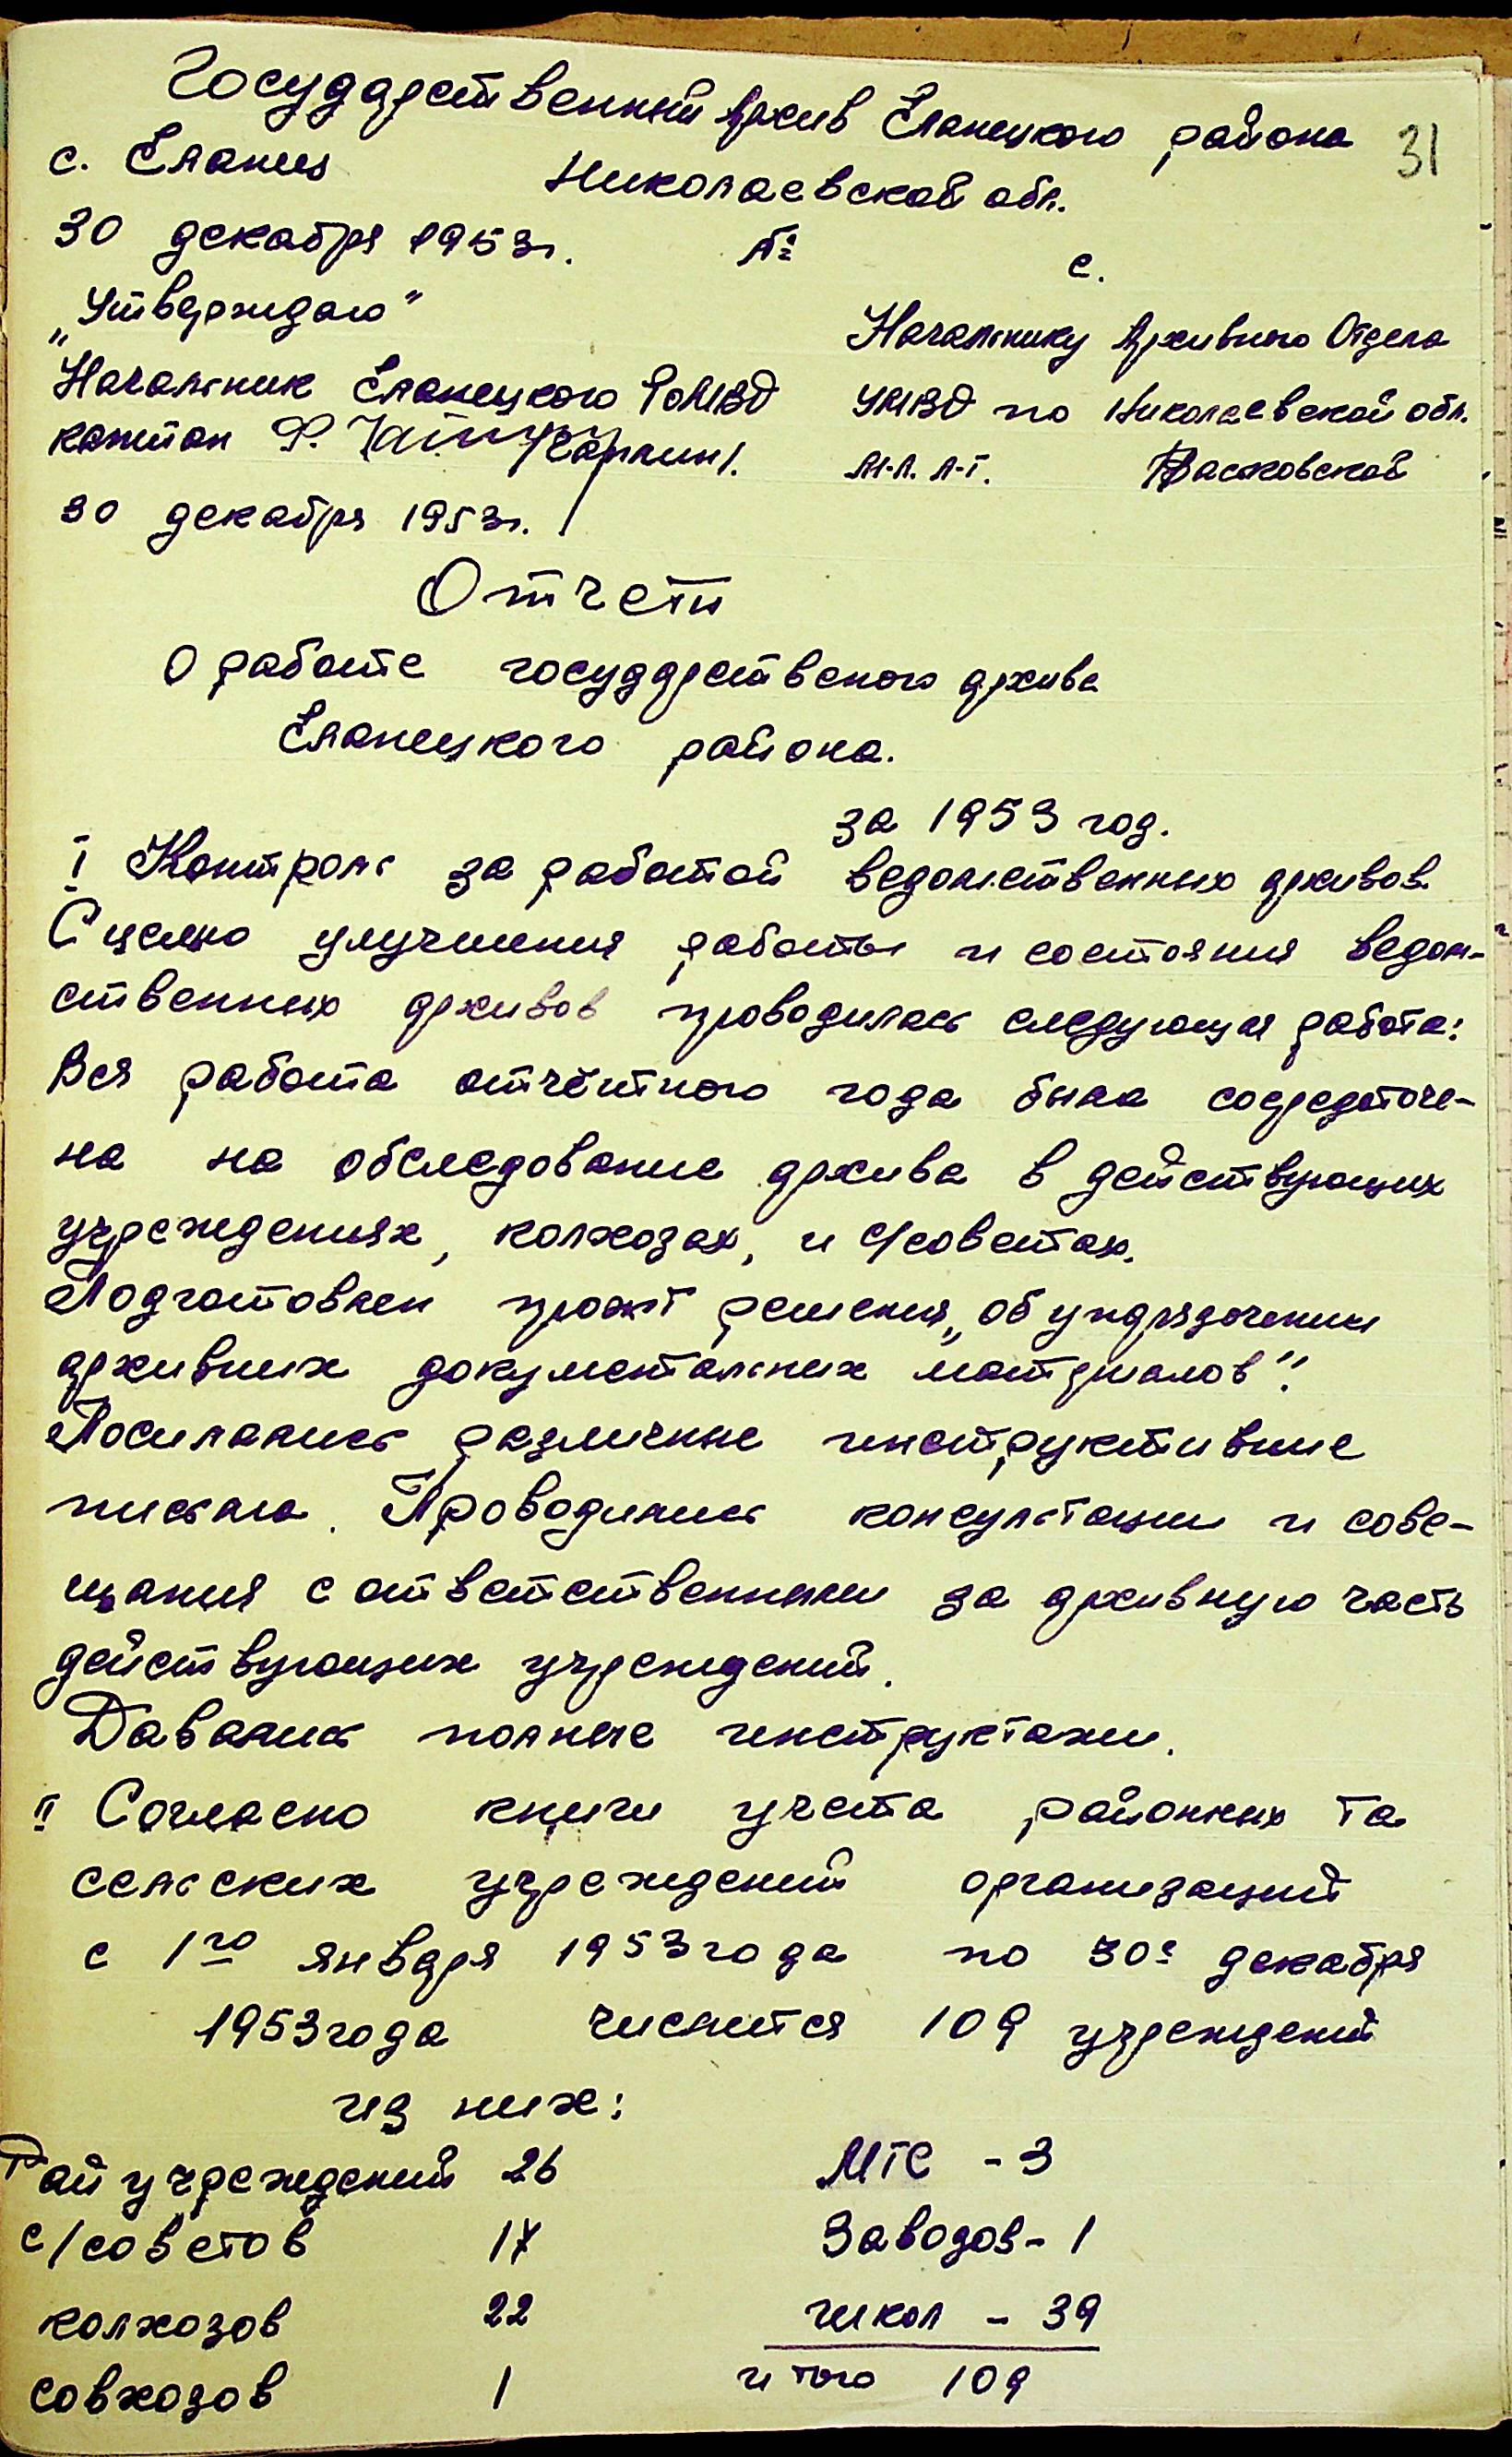 Государственный Архив Еланецкого района 31
с. Еланец Николаевской обл.
30 декабря 1953г. № с.
„Утверждаю"
Начальнику Архивного Отдела
Начальник Еланецкого РоМВД
УМВД по Николаевской обл.
капитан
М-Л. Л-Т.
30 декабря 1953г.
Отчетъ
О работе государственого архива
Еланецкого района.
за 1953 год.
I Контроль за работой ведомственных архивов.
С целью улучшения работы и состояния ведом-
ственных архивов проводилась следующая работа:
Вся работа отчётного года была сосредоточе-
на на обследование архива в действующих
учреждениях, колхозах, и с/советах.
Подготовлен проект решения „об упорядочении
архивных документальних материалов".
Посилались различные инструктивние
письма. Проводились консультации и сове-
щания с ответственными за архивную часть
действующих учреждений.
Давались полные инструктажи.
II Согласно книги учета районных та
сельских учреждений организаций
с 1го января 1953 года по 30е декабря
1953 года числится 109 учреждений
из них:
Рай учреждений 26 МТС - 3
с/советов 17 Заводов - 1
колхозов 22 школ - 39
совхозов 1 итого 109